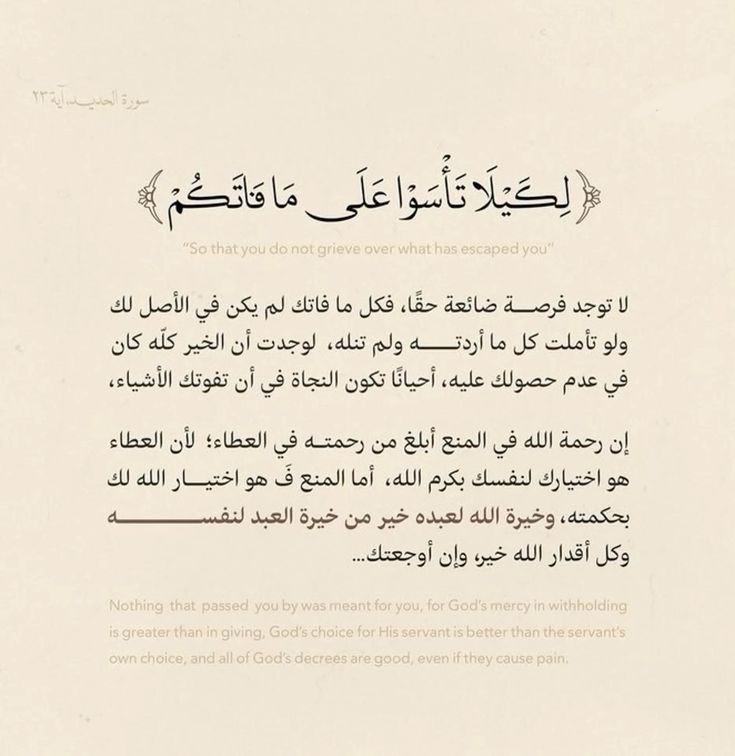 سورة الحديد، آية ٢٣
﴿لِكَيْلَا تَأْسَوْا عَلَى مَا فَاتَكُمْ﴾
"So that you do not grieve over what has escaped you"
لا توجد فرصة ضائعة حقًا، فكل ما فاتك لم يكن في الأصل لك
ولو تأملت كل ما أردته ولم تنله، لوجدت أن الخير كلّه كان
في عدم حصولك عليه، أحيانًا تكون النجاة في أن تفوتك الأشياء،
إن رحمة الله في المنع أبلغ من رحمته في العطاء؛ لأن العطاء
هو اختيارك لنفسك بكرم الله، أما المنع فَ هو اختيار الله لك
بحكمته، وخيرة الله لعبده خير من خيرة العبد لنفسه
وكل أقدار الله خير، وإن أوجعتك...
Nothing that passed you by was meant for you, for God's mercy in withholding
is greater than in giving, God's choice for His servant is better than the servant's
own choice, and all of God's decrees are good, even if they cause pain.